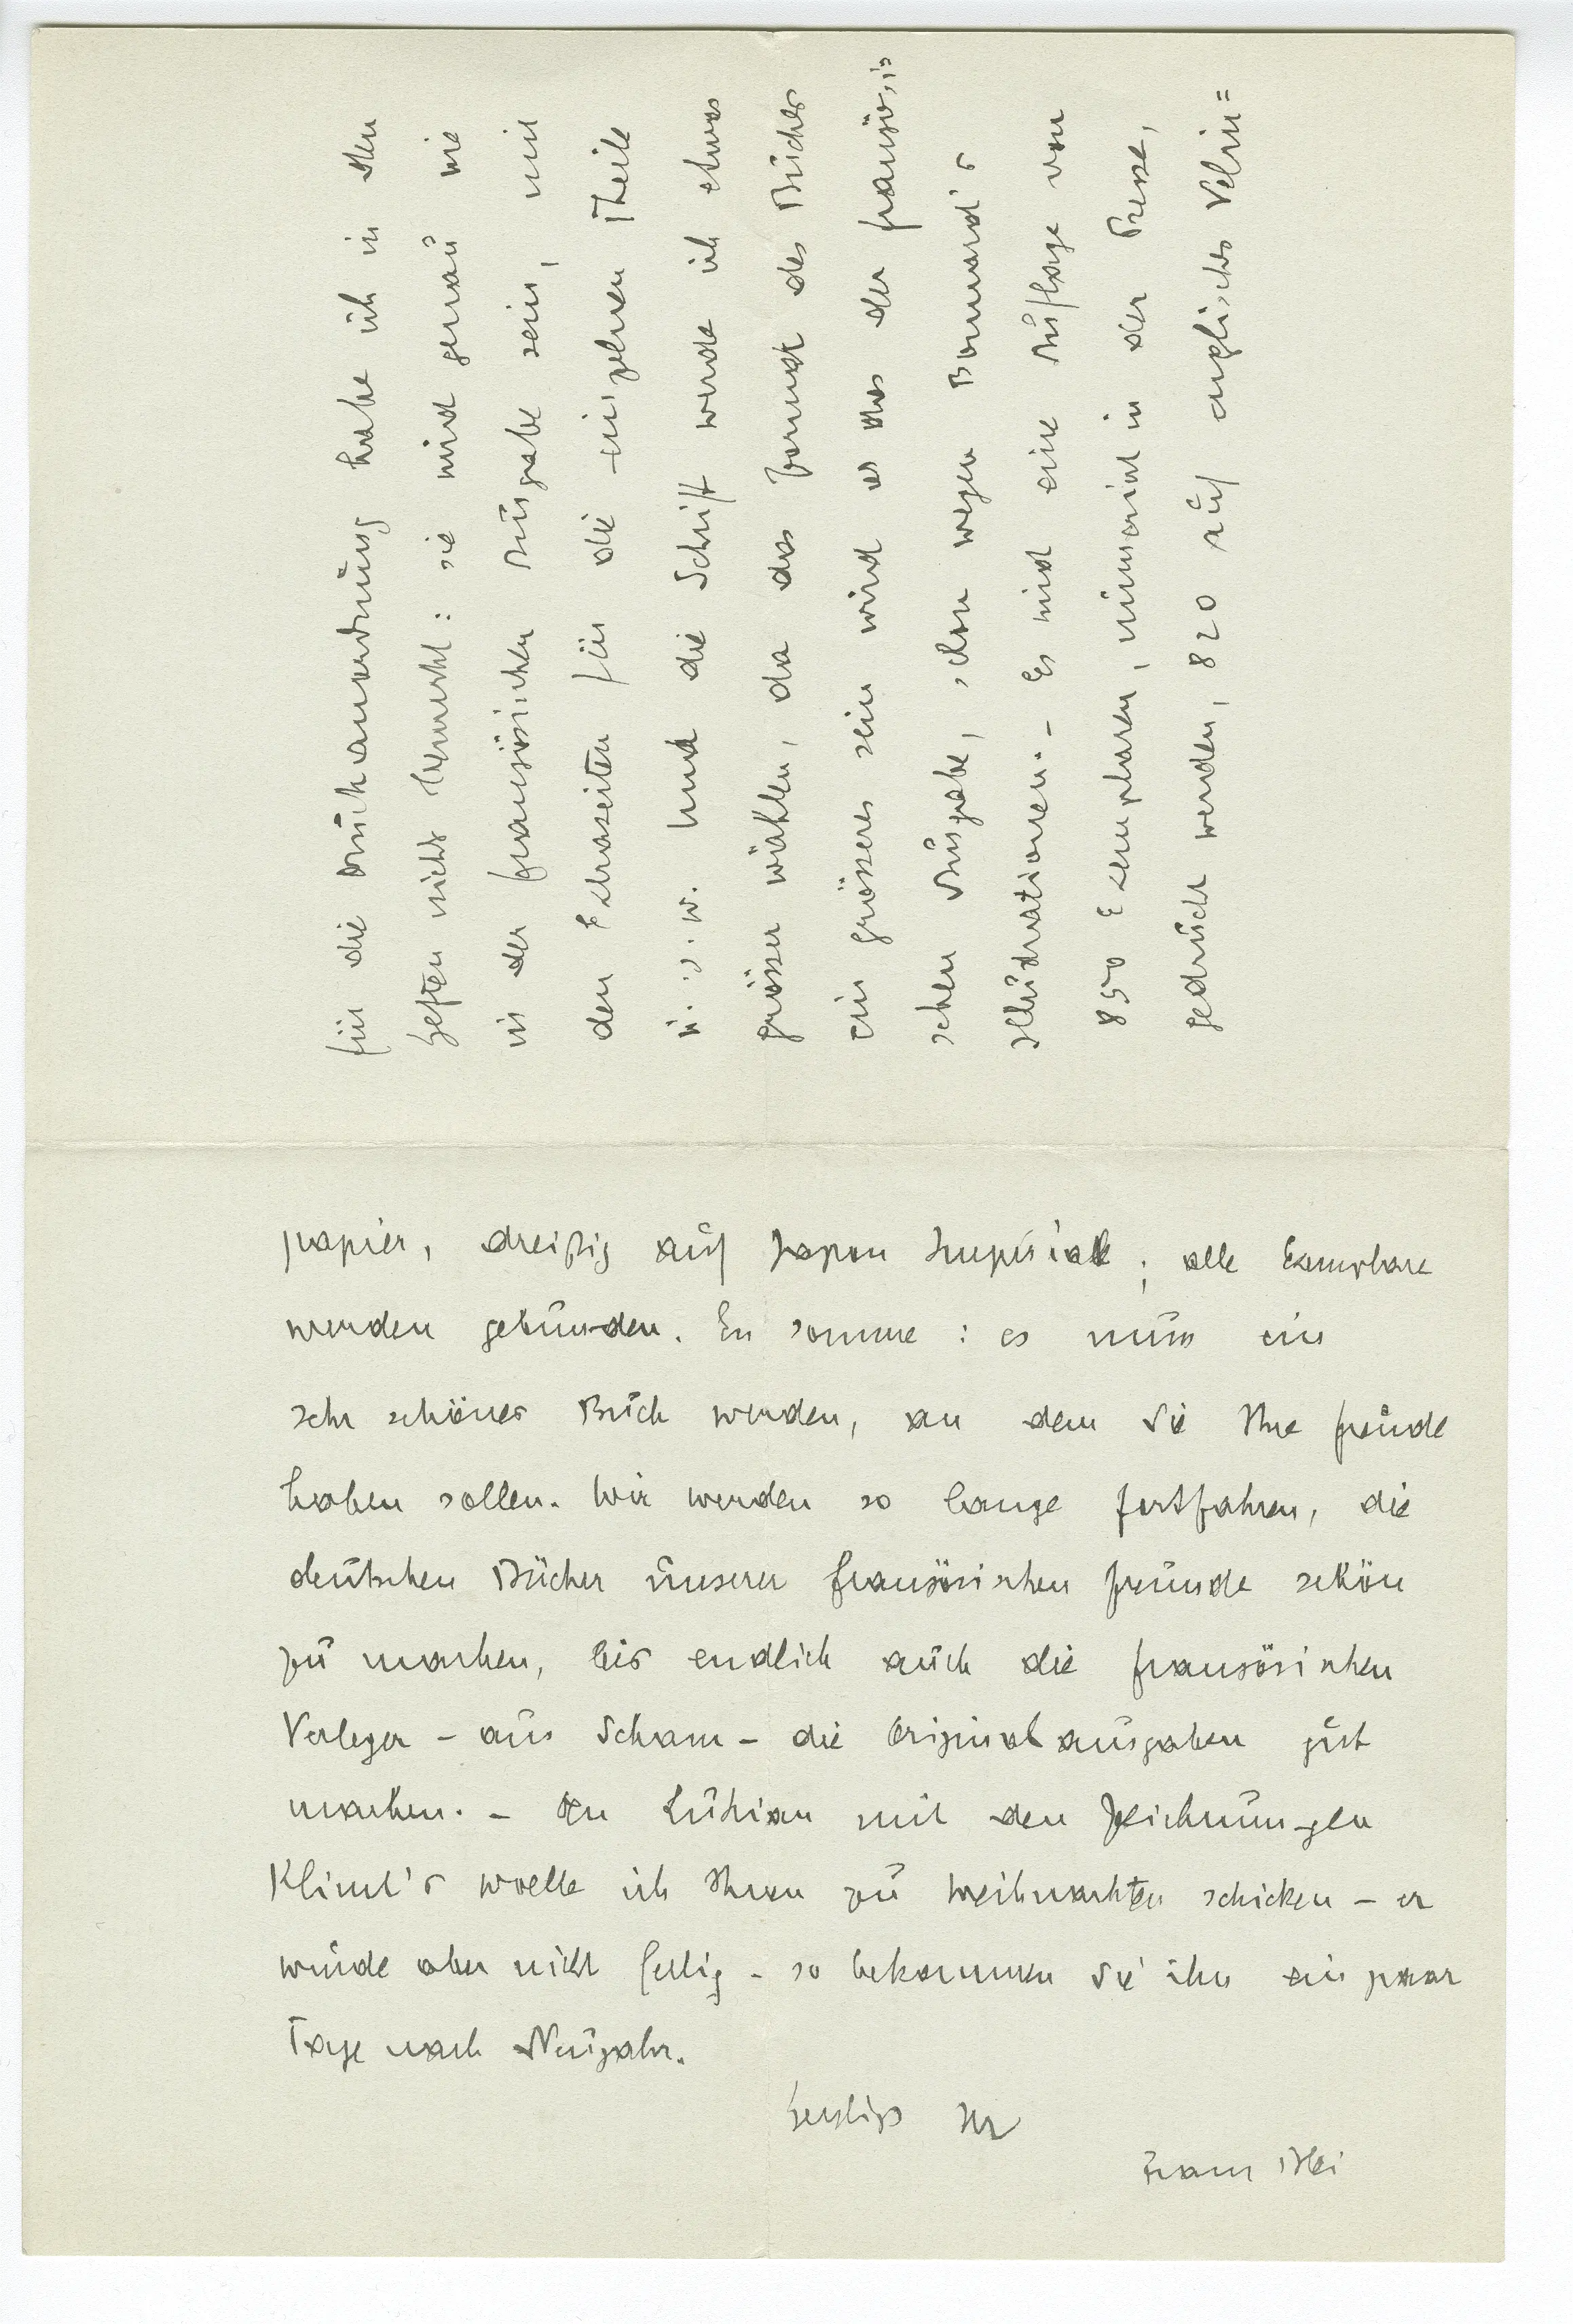 für die Druckanordnung habe ich in den
Heften nicht bemerkt: sie wird genau wie
in der französischen Ausgabe sein, mit
den Extraseiten für die einzelnen Theile
u. s. w. Und die Schrift werde ich etwas
grösser wählen, da das Format des Buches
ein grösseres sein wird als das der französi
schen Ausgabe, schon wegen Bonnard's
Illustrationen. – Es wird eine Auflage von
850 Exemplaren, numerirt in der Presse,
gedruckt werden, 820 auf englisches Velin=
papier, dreißig auf Japon Impérial; alle Exemplare
werden gebunden. En somme: es muss ein
sehr schönes Buch werden, an dem Sie Ihre Freude
haben sollen. Wir werden so lange fortfahren, die
deutschen Bücher unserer französischen Freunde schön
zu machen, bis endlich auch die französischen
Verleger – aus Scham – die Originalausgaben gut
machen. – Den Lukian mit den Zeichnungen
Klimt's wollte ich Ihnen zu Weihnachten schicken – er
wurde aber nicht fertig – so bekommen Sie ihn ein paar
Tage nach Neujahr.
Herzlichst Ihr
Franz Blei